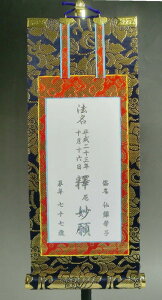 俗名
法名
平成二十三年
十月十六日
釋尼妙願
享年 七十七歳